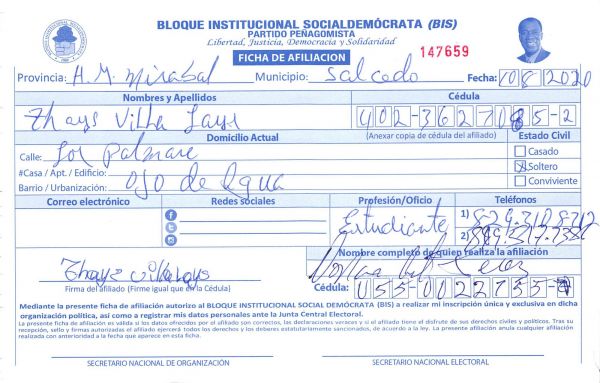 BLOQUE INSTITUCIONAL SOCIALDEMÓCRATA (BIS)
PARTIDO PEÑAGOMISTA
Libertad, Justicia, Democracia y Solidaridad
FICHA DE AFILIACION
147659
Provincia: H.M. Mirabal Municipio: Salcedo Fecha: 10/8/2020
Nombres y Apellidos Cédula
Thays Villa
402-362708 5-2
Domicilio Actual (Anexar copia de cédula del afiliado) Estado Civil
Calle: Los Palmare
Casado
#Casa / Apt. / Edificio: Soltero
Barrio / Urbanización: Ojo de Agua Conviviente
Correo electrónico Redes sociales Profesión/Oficio Teléfonos
Estudiante
1) 829.310 8712
2)
Nombre completo de quien realiza la afiliación
Thays
Firma del afiliado (Firme igual que en la Cédula)
Cédula: 055-0022755-
Mediante la presente ficha de afiliación autorizo al BLOQUE INSTITUCIONAL SOCIAL DEMÓCRATA (BIS) a realizar mi inscripción única y exclusiva en dicha
organización política, así como a registrar mis datos personales ante la Junta Central Electoral.
La presente ficha de afiliación es válida si los datos ofrecidos por el afiliado son correctos, las declaraciones veraces y si el afiliado tiene el disfrute de sus derechos civiles y políticos. Tras su
recepción, sello y firmas autorizadas el afiliado ejercerá todos los derechos y los deberes estatutariamente sancionados, de acuerdo a la ley. La presente afiliación anula cualquier afiliación
realizada con anterioridad a la fecha que aparece en esta ficha.
SECRETARIO NACIONAL DE ORGANIZACIÓN SECRETARIO NACIONAL ELECTORAL